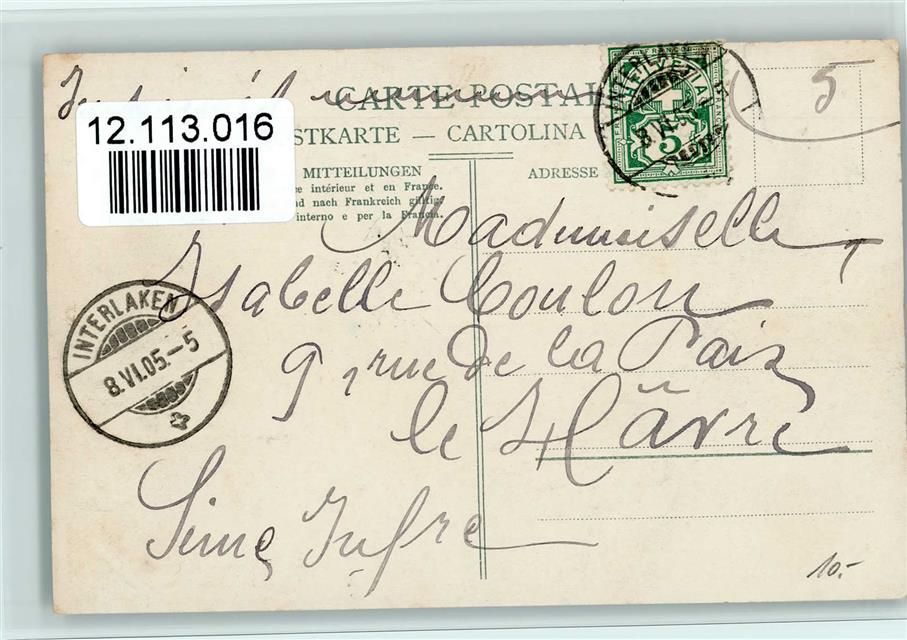 CARTE POSTAL
5
12.113.016
STKARTE — CARTOLINA
MITTEILUNGEN
ADRESSE
e intérieur et en France.
d nach Frankreich gültig.
interno e per la Francia.
INTERLAKEN
8.VI.05
5
Mademoiselle
T
Isabelle Coulon
9, rue de la Paix
le Hâvre
Seine Infre
INTERLAKEN
8.VI.05.–5
10.-